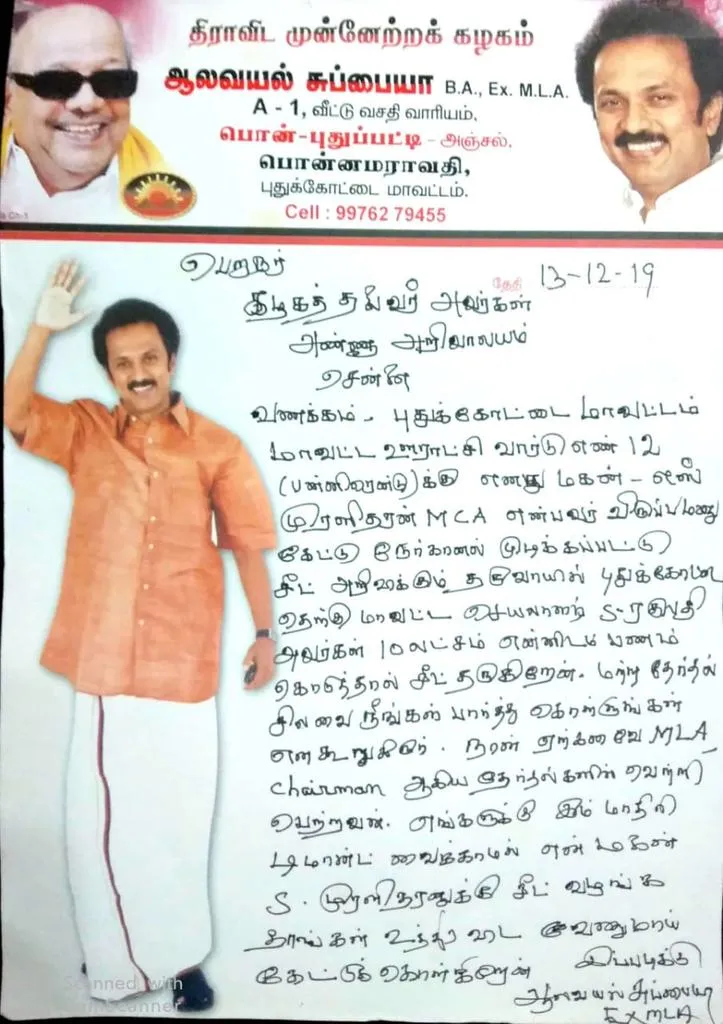 திராவிட முன்னேற்றக் கழகம்
ஆலவயல் சுப்பையா B.A., Ex. M.L.A.
A - 1, வீட்டு வசதி வாரியம்,
பொன்-புதுப்பட்டி - அஞ்சல்,
பொன்னமராவதி,
புதுக்கோட்டை மாவட்டம்.
Cell : 99762 79455
பெறுநர்
தேதி 13-12-19
கழகத் தலைவர் அவர்கள்
அண்ணா அறிவாலயம்
சென்னை
வணக்கம். புதுக்கோட்டை மாவட்டம்
மாவட்ட ஊராட்சி வார்டு எண் 12
(பன்னிரெண்டு)க்கு எனது மகன் - எஸ்
முரளிதரன் MCA என்பவர் விருப்பமனு
கேட்டு நேர்கானல் முடிக்கப்பட்டு
சீட் அறிவிக்கும் தருவாயில் புதுக்கோட்டை
தெற்கு மாவட்ட செயலாளர் S-ரகுபதி
அவர்கள் 10 லட்சம் என்னிடம் பணம்
கொடுத்தால் சீட் தருகிறேன். மற்ற தேர்தல்
செலவை நீங்கள் பார்த்து கொள்ளுங்கள்
என கூறுகிறார். நான் ஏற்கனவே MLA,
Chairman ஆகிய தேர்தல்களில் வெற்றி
பெற்றவன். எங்களுக்கு இம் மாதிரி
டிமாண்ட் வைக்காமல் என் மகன்
S. முரளிதரனுக்கு சீட் வழங்க
தாங்கள் உத்தரவிட வேணுமாய்
கேட்டுக் கொள்கிறேன் இப்படிக்கு
ஆலவயல் சுப்பையா
Ex MLA
Scanned with